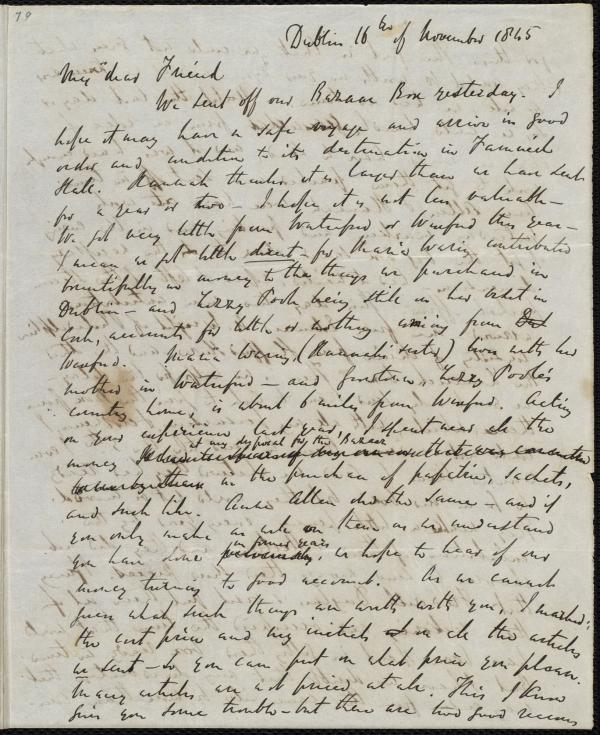 79
Dublin 16th of November 1845
My dear Friend
We sent off our Bazaar Box yesterday. I
hope it may have a safe voyage and arrive in good
order and condition to its destination in Faneuil
Hall. Hannah thinks it is larger than we have sent
for a year or two – I hope it is not less valuable –
We got very little from Waterford or Wexford this year –
I mean we got little direct – for Maria Waring contributed
bountifully in money to the things we purchased in
Dublin – and Lizzy Poole being still on her visit in
Cork, accounts for little or nothing coming from
Wexford. Maria Waring, (Hannah's sister) lives with her
mother in Waterford – and Growtown, Lizzy Poole's
country home, is about 6 miles from Wexford. Acting
on your experience last year, I spent near all the
at my disposal for the Bazaar
money in the purchase of papeterie, sachets,
and such like. Anne Allen did the same – and if
you only make as well on them as we understand
in former years
you have done previously, we hope to hear of our
money turning to good account. As we cannot
guess what such things are worth with you, I marked
the cost price and my initials on all the articles
we sent – so you can put on what price you please.
Many articles are not priced at all. This I know
gives you some trouble – but there are two good reasons